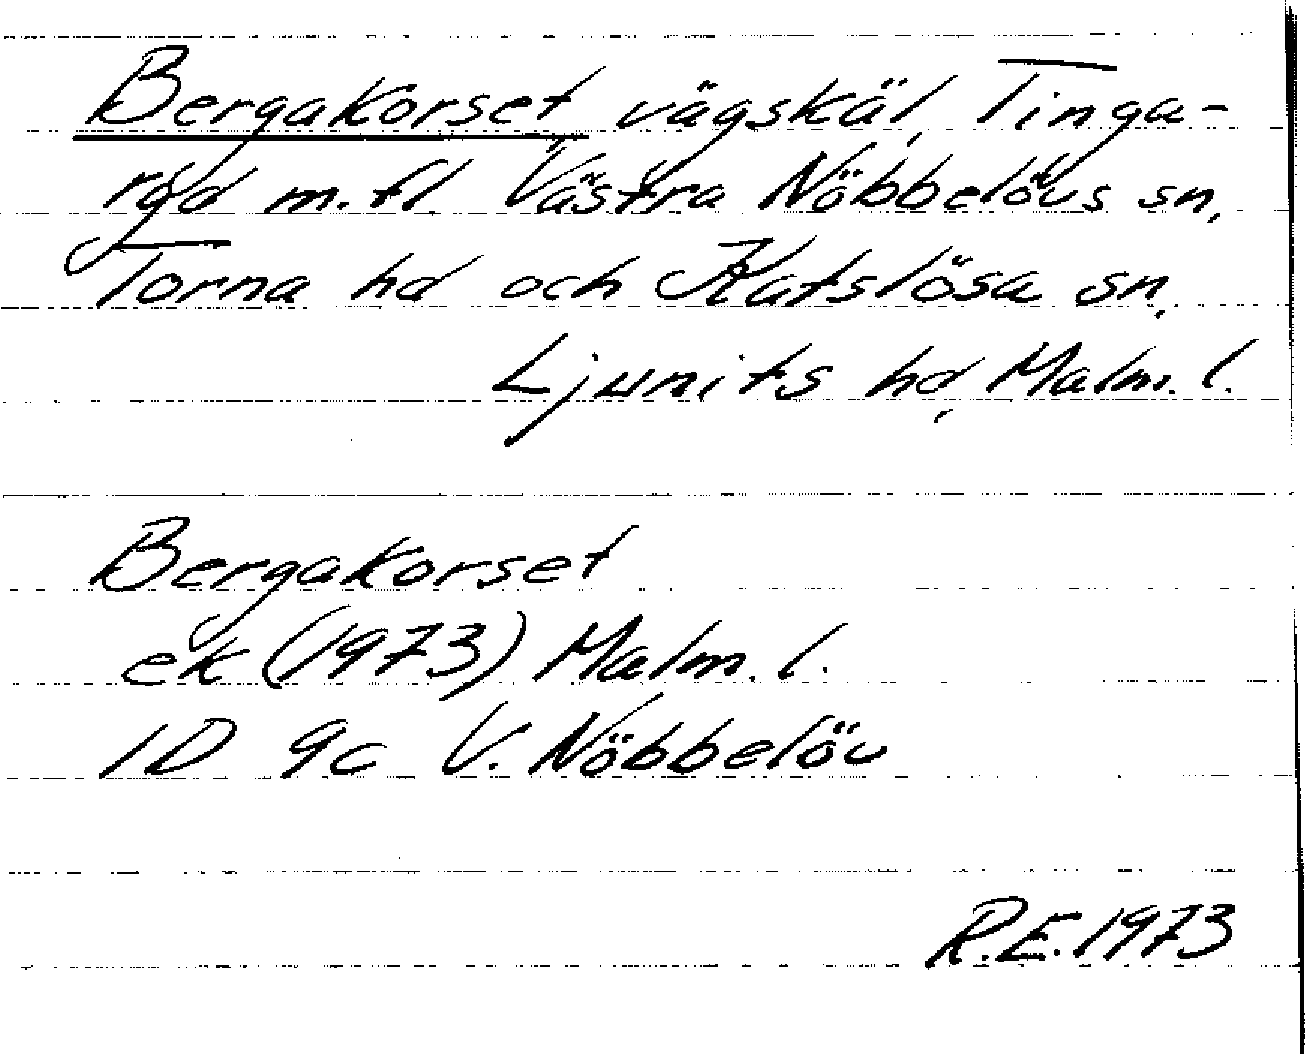 Bergakorset vägskäl, Tinga-
röd m.fl. Västra Nöbbelövs sn,
Torna hd och Katslösa sn,
Ljunits hd, Malm. l.
Bergakorset
ek (1973) Malm. l.
1D 9c V. Nöbbelöv
R.E. 1973